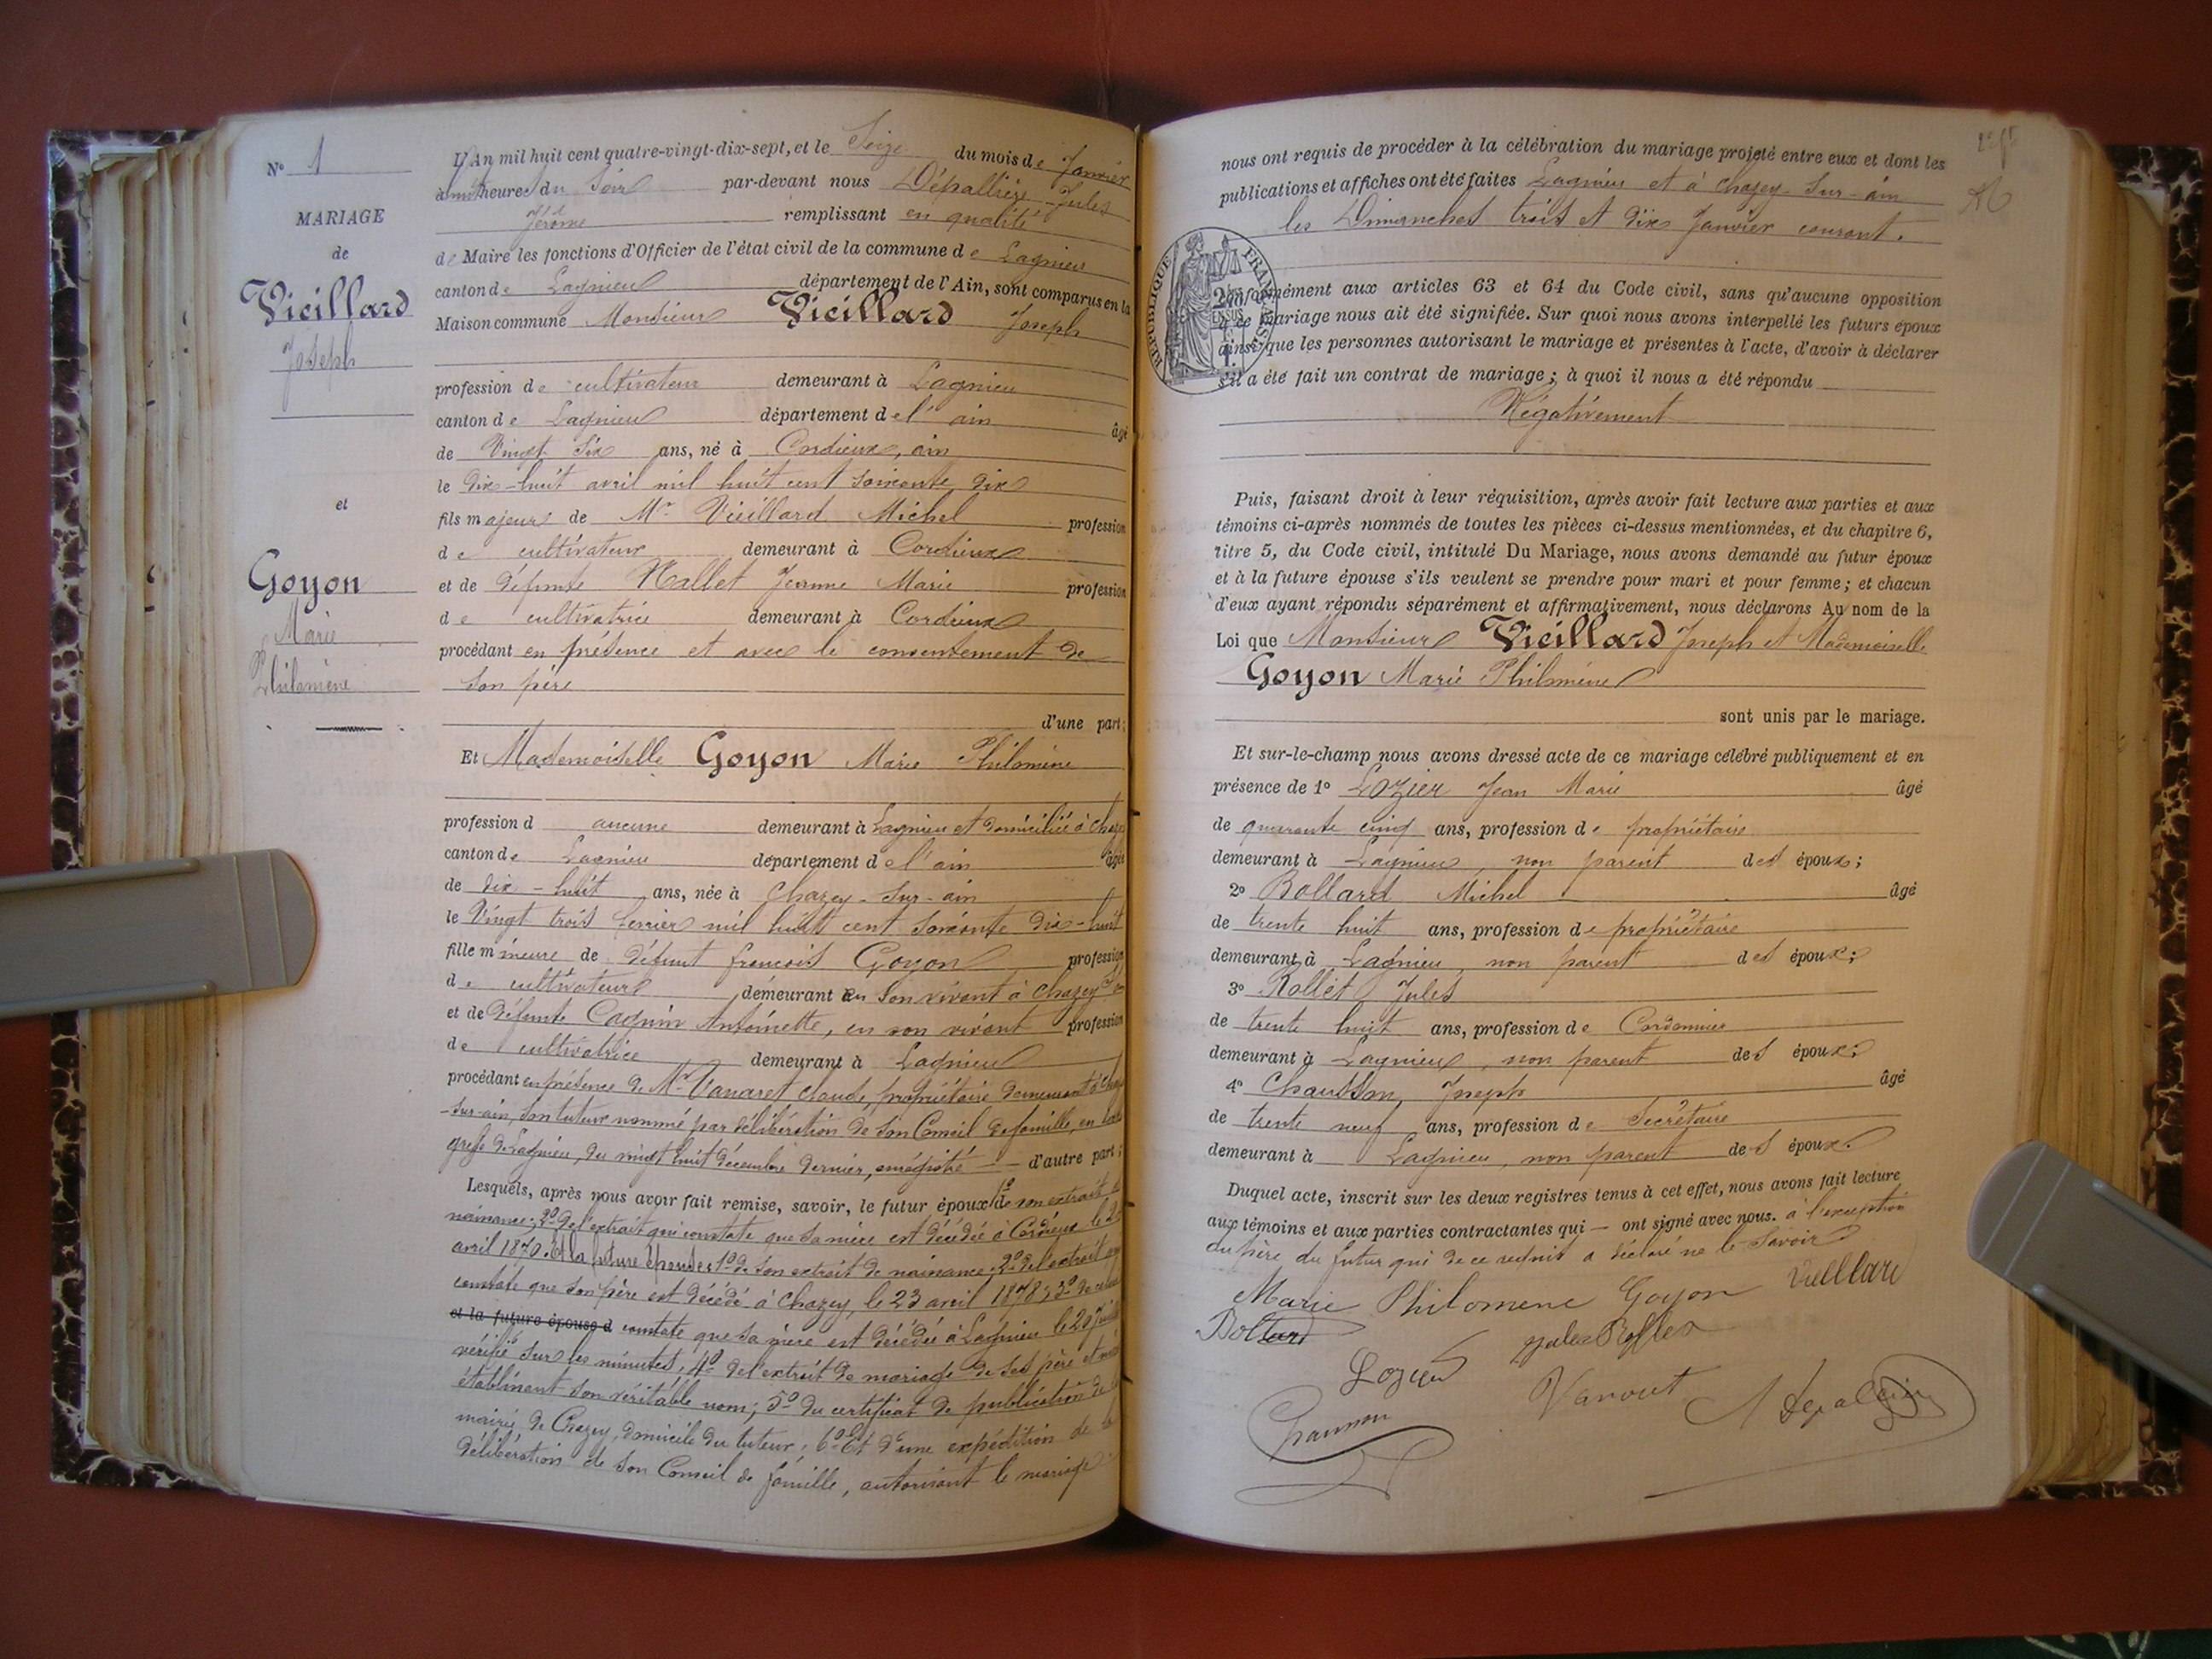 N° 1
MARIAGE
de
Vieillard
Joseph
et
Goyon
Marie
Philomène
L'An mil huit cent quatre-vingt-dix-sept, et le Seize du mois de Janvier
heures du Soir par-devant nous Dépallière Jules
Jérôme remplissant en qualité
de Maire les fonctions d'Officier de l'état civil de la commune de Lagnieu
canton de Lagnieu département de l'Ain, sont comparus en la
Maison commune Monsieur Vieillard Joseph
profession de cultivateur demeurant à Lagnieu
canton de Lagnieu département de l'ain âgé
de Vingt Six ans, né à Cordieux, ain
le dix-huit avril mil huit cent soixante dix
fils majeur de Mr Vieillard Michel profession
de cultivateur demeurant à Cordieux
et de défunte Nallet Jeanne Marie profession
de cultivatrice demeurant à Cordieux
procédant en présence et avec le consentement de
son père
d'une part;
Et Mademoiselle Goyon Marie Philomène
profession d aucune demeurant à Lagnieu et domiciliée à Chazey
canton de Lagnieu département de l'ain âgée
de dix-huit ans, née à Chazey-sur-ain
le Vingt trois fevrier mil huit cent soixante dix-huit
fille mineure de défunt francois Goyon profession
de cultivateur demeurant en son vivant à Chazey
et de défunte Cagnin Antoinette, en son vivant profession
de cultivatrice demeurant à Lagnieu
procédant en présence de Mr Vanaret Claude, propriétaire demeurant à
-sur-ain, son tuteur nommé par délibération de son Conseil de famille, en
greffe de Lagnieu, du vingt huit décembre dernier, enregistré d'autre part;
Lesquels, après nous avoir fait remise, savoir, le futur époux 1° de son extrait de
naissance; 2° de l'extrait qui constate que sa mère est décédée à Cordieux le
avril 1870. Et la future épouse 1° de son extrait de naissance; 2° de l'extrait qui
constate que son père est décédé à Chazey, le 23 avril 1878; 3° de celui
et la future épouse d constate que sa mère est décédée à Lagnieu le 20
vérifié sur les minutes, 4° de l'extrait de mariage de ses père et mère
établissant son véritable nom; 5° du certificat de publication de la
mairie de Chazey, domicile du tuteur; 6° Et d'une expédition de la
délibération de son Conseil de famille, autorisant le mariage
nous ont requis de procéder à la célébration du mariage projeté entre eux et dont les
publications et affiches ont été faites Lagnieu et à chazey-sur-ain
les Dimanches trois et dix Janvier courant.
RÉPUBLIQUE FRANÇAISE
conformément aux articles 63 et 64 du Code civil, sans qu'aucune opposition
à ce mariage nous ait été signifiée. Sur quoi nous avons interpellé les futurs époux
ainsi que les personnes autorisant le mariage et présentes à l'acte, d'avoir à déclarer
s'il a été fait un contrat de mariage; à quoi il nous a été répondu
Négativement
Puis, faisant droit à leur réquisition, après avoir fait lecture aux parties et aux
témoins ci-après nommés de toutes les pièces ci-dessus mentionnées, et du chapitre 6,
titre 5, du Code civil, intitulé Du Mariage, nous avons demandé au futur époux
et à la future épouse s'ils veulent se prendre pour mari et pour femme; et chacun
d'eux ayant répondu séparément et affirmativement, nous déclarons Au nom de la
Loi que Monsieur Vieillard Joseph et Mademoiselle
Goyon Marie Philomène
sont unis par le mariage.
Et sur-le-champ nous avons dressé acte de ce mariage célébré publiquement et en
présence de 1° Lozier Jean Marie âgé
de quarante cinq ans, profession de propriétaire
demeurant à Lagnieu, non parent des époux;
2° Bollard Michel âgé
de trente huit ans, profession de propriétaire
demeurant à Lagnieu, non parent des époux;
3° Rollet Jules
de trente huit ans, profession de Cordonnier
demeurant à Lagnieu, non parent des époux;
4° Chausson, Joseph âgé
de trente neuf ans, profession de Secrétaire
demeurant à Lagnieu, non parent des époux.
Duquel acte, inscrit sur les deux registres tenus à cet effet, nous avons fait lecture
aux témoins et aux parties contractantes qui — ont signé avec nous. à l'exception
du père du futur qui de ce requis a déclaré ne le savoir
Marie Philomene Goyon Vieillard
Bollard
Jules Rollet
Lozier
Chausson